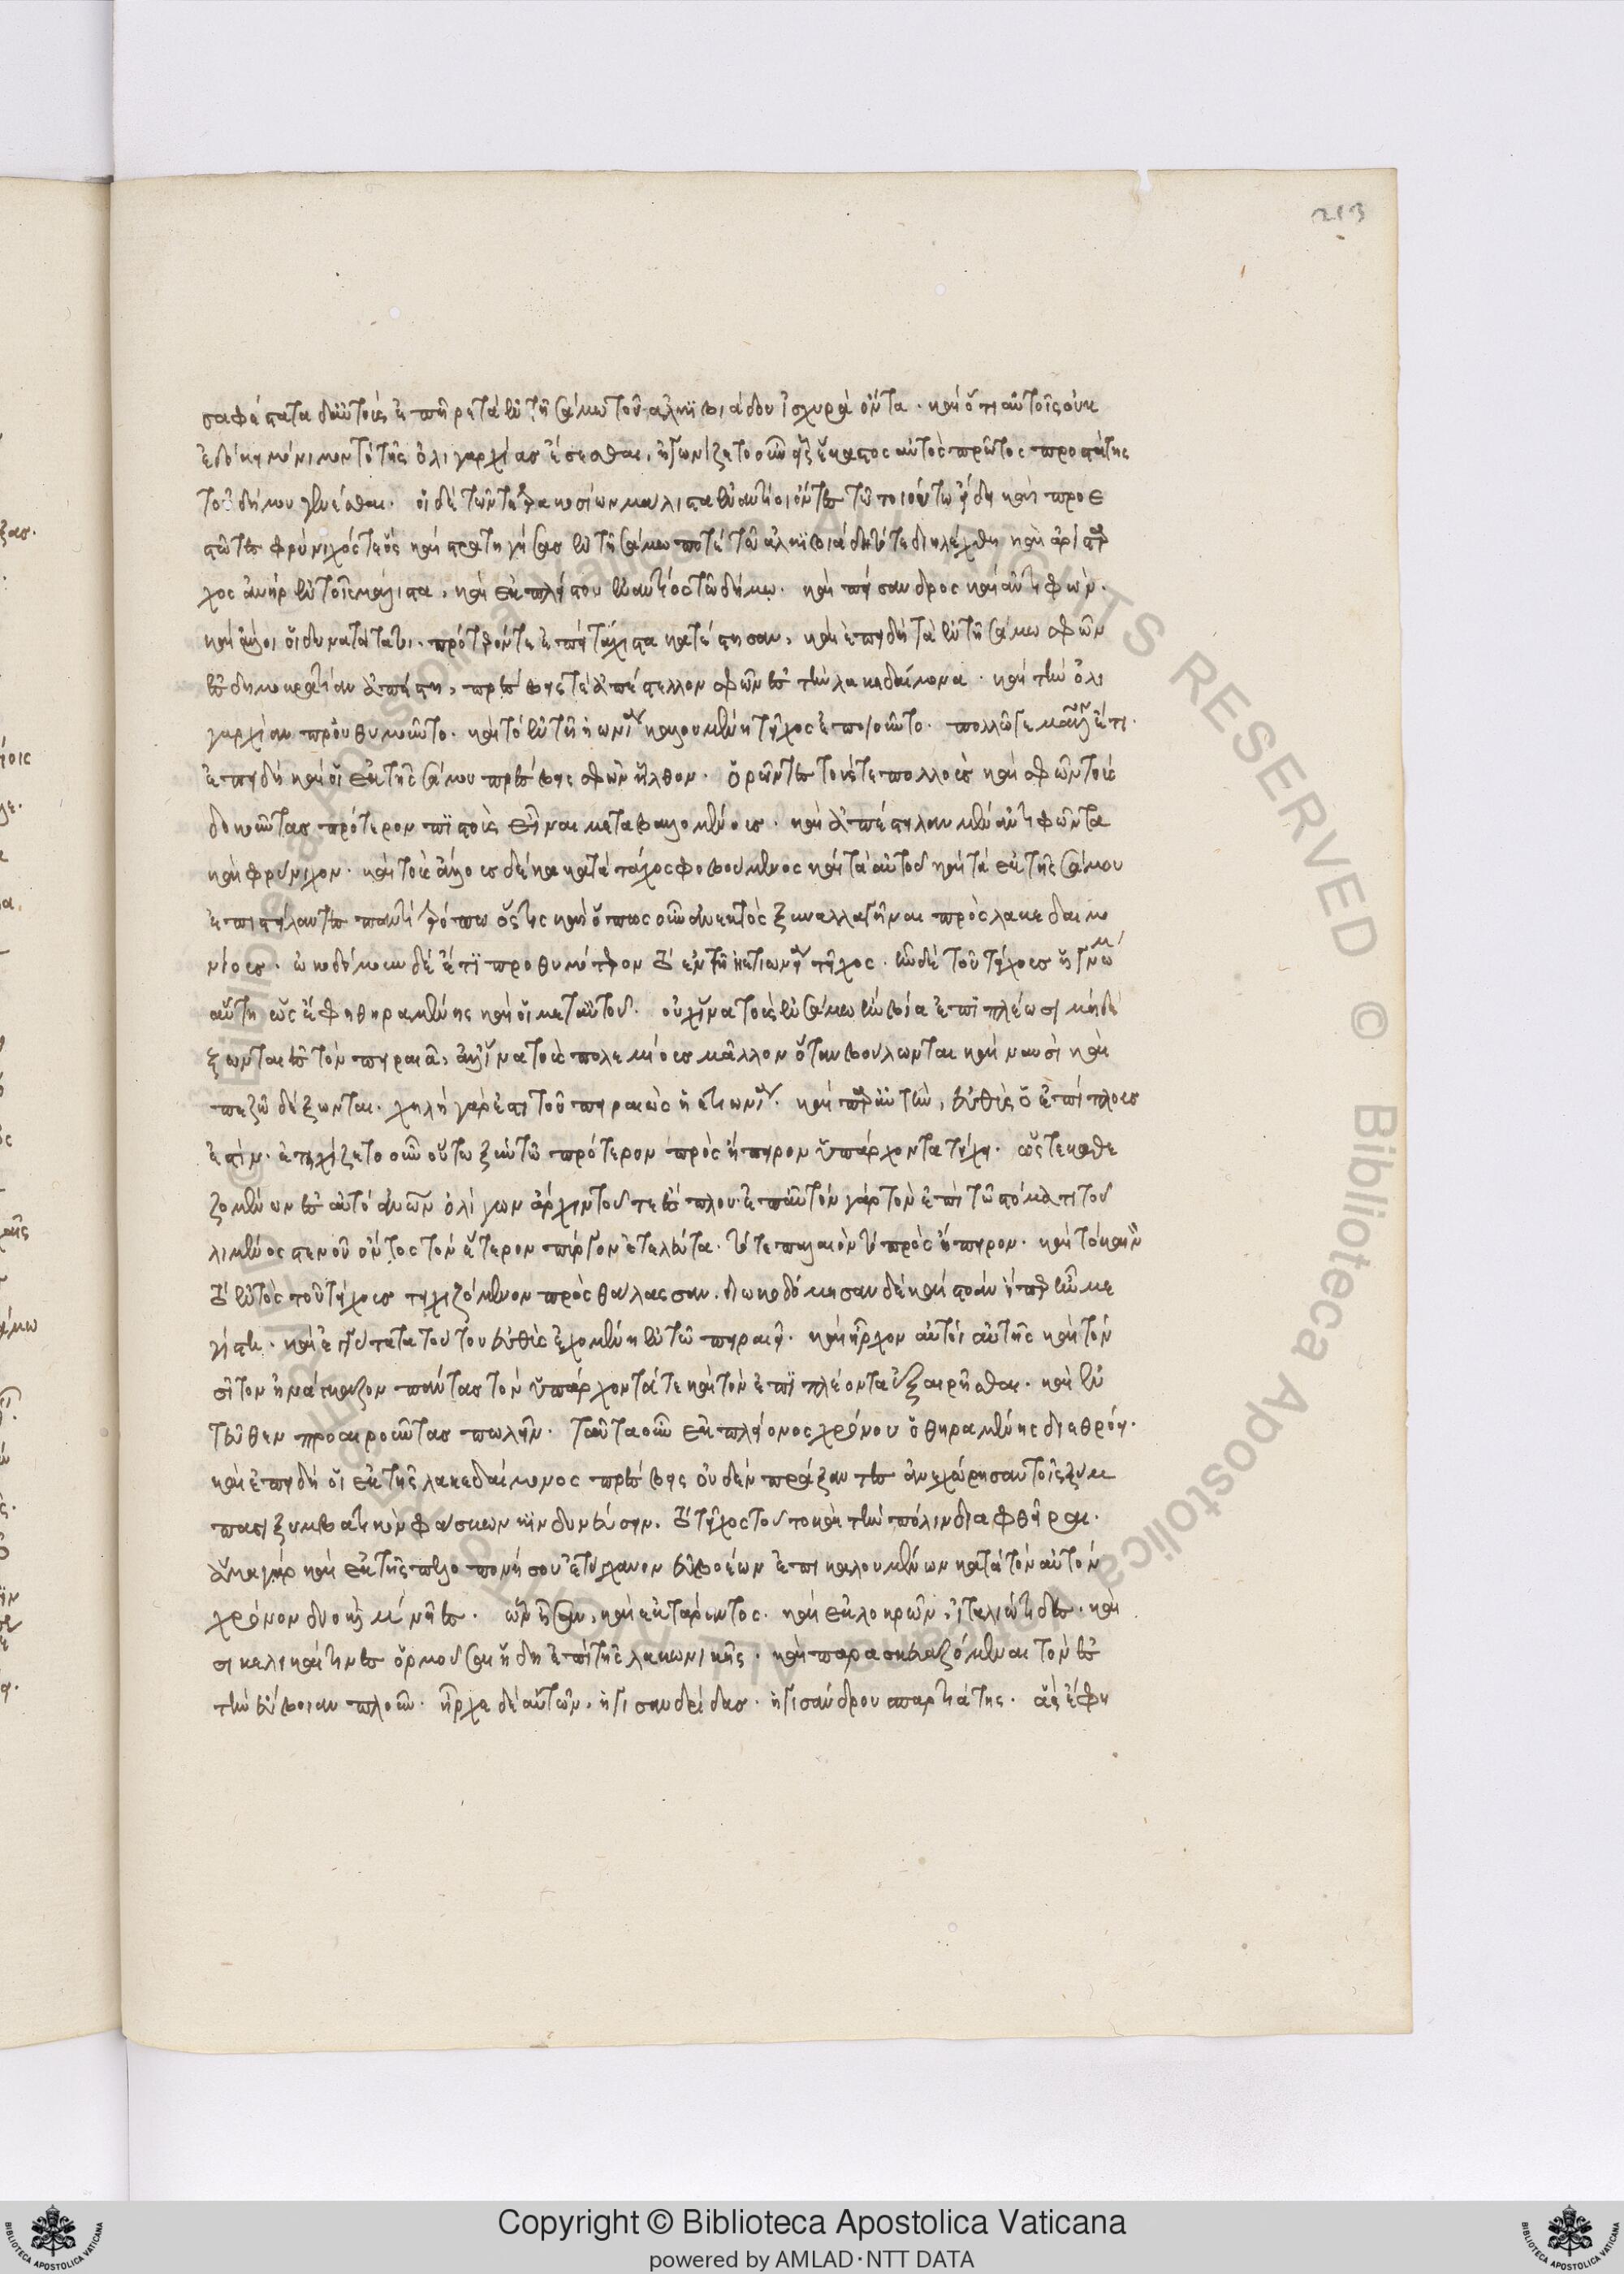 213
σαφέστατα δ' αὐτοὺς ἐπῆρε τὰ ἐν τῆ σάμω τοῦ ἀλκιβιάδου ἰσχυρὰ ὄντα · καὶ ὅτι αὐτοῖς οὐκ
ἐδόκει μόνιμον τὸ τῆς ὀλιγαρχίας ἔσεσθαι, ἠγωνίζετο οὖν εἷς ἕκαστος αὐτὸς πρῶτος προστάτης
τοῦ δήμου γενέσθαι. οἱ δὲ τῶν τετρακοσίων μάλιστα ἐναντίοι ὄντες τῶ τοιούτω εἴδει καὶ προε
στῶτες φρύνιχός τε ὃς καὶ στρατηγήσας ἐν τῆ σάμω ποτὲ τῶ ἀλκιβιάδη τότε διηλέχθη καὶ ἀρίσταρ
χος ἀνὴρ ἐν τοῖς μάλιστα, καὶ ἐκ πλείστου ἐναντίος τῶ δήμω. καὶ πείσανδρος καὶ ἀντιφῶν.
καὶ ἄλλοι οἱ δυνατώτατοι. πρότερόν τε ἐπεὶ τάχιστα κατέστησαν, καὶ ἐπειδὴ τὰ ἐν τῆ σάμω σφῶν
ἐς δημοκρατίαν ἀπέστη, πρέσβεις τε ἀπέστελλον σφῶν ἐς τὴν λακεδαίμονα · καὶ τὴν ὀλι
γαρχίαν προὐθυμοῦντο. καὶ τὸ ἐν τῆ ἠετιωνεία καλουμένη τεῖχος ἐποιοῦντο. πολλῶ τε μᾶλλον ἔτι.
ἐπειδὴ καὶ οἱ ἐκ τῆς σάμου πρέσβεις σφῶν ἦλθον. ὁρῶντες τούς τε πολλοὺς καὶ σφῶν τοὺς
δοκοῦντας πρότερον πιστοὺς εἶναι μεταβαλλομένους. καὶ ἀπέστειλαν μὲν ἀντιφῶντα
καὶ φρύνιχον. καὶ τοὺς ἄλλους δέκα κατὰ τάχος φοβούμενος καὶ τὰ αὐτοῦ καὶ τὰ ἐκ τῆς σάμου
ἐπιστείλαντες παντὶ τρόπω ὅστις καὶ ὅπως οὖν ἀνεκτὸς ξυναλλαγῆναι πρὸς λακεδαιμο
νίους. ὠκοδόμουν δὲ ἔτι προθυμότερον τὸ ἐν τῆ ἠετιωνεία τεῖχος. ἦν δὲ τοῦ τείχους ἡ γνώμη
αὕτη ὡς ἔφη θηραμένης καὶ οἱ μετ' αὐτοῦ. οὐχ ἵνα τοὺς ἐν σάμω ἢν βία ἐπιπλέωσι μὴ δέ
ξωνται ἐς τὸν πειραιᾶ, ἀλλ' ἵνα τοὺς πολεμίους μᾶλλον ὅταν βούλωνται καὶ ναυσὶ καὶ
πεζῶ δέξωνται. χηλὴ γάρ ἐστι τοῦ πειραιῶς ἡ ἠετιωνεία. καὶ παρ' αὐτὴν, εὐθὺς ὁ ἐπίπλους
ἐστίν. ἐτειχίζετο οὖν οὕτω ξὺν τῶ πρότερον πρὸς ἤπειρον ὑπάρχοντα τείχη. ὥστε καθε
ζομένων ἐς αὐτὸ ἀνθρώπων ὀλίγων ἄρχειν τοῦ τε ἔσπλου. ἐπ' αὐτὸν γὰρ τὸν ἐπὶ τῶ στόματι τοῦ
λιμένος στενοῦ ὄντος τὸν ἕτερον πύργον ἐτελεύτα. τό τε παλαιὸν τὸ πρὸς ἤπειρον. καὶ τὸ καινὸν
τὸ ἐντὸς τοῦ τείχους τειχιζόμενον πρὸς θάλασσαν. διωκοδόμησαν δὲ καὶ στοὰν ἥπερ ἦν με
γίστη. καὶ ἐγγύτατα τούτου εὐθὺς ἐχομένη ἐν τῶ πειραιεῖ. καὶ ἦρχον αὐτοὶ αὐτῆς καὶ τὸν
σῖτον ἠνάγκαζον πάντας τὸν ὑπάρχοντά τε καὶ τὸν ἐπιπλέοντα ἐξαιρεῖσθαι. καὶ ἐν
τεῦθεν προαιροῦντας πωλεῖν. ταῦτα οὖν ἐκ πλείονος χρόνου ὁ θηραμένης διεθρόει.
καὶ ἐπειδὴ οἱ ἐκ τῆς λακεδαίμονος πρέσβεις οὐδὲν πράξαντες ἀνεχώρησαν τοῖς ξύμ
πασι ξυμβατικὸν φάσκων κινδυνεύσειν. τὸ τεῖχος τοῦτο καὶ τὴν πόλιν διαφθεῖραι.
ἅμα γὰρ καὶ ἐκ τῆς πελοποννήσου ἐτύγχανον εὐβοέων ἐπικαλουμένων κατὰ τὸν αὐτὸν
χρόνον δύο καὶ μ' νῆες. ὧν ἦσαν, καὶ ἐκ τάραντος. καὶ ἐκ λοκρῶν, ἰταλιώτιδες. καὶ
σικελικαί τινες ὁρμοῦσαι ἤδη ἐπὶ τῆς λακωνικῆς. καὶ παρασκευαζόμεναι τὸν ἐς
τὴν εὔβοιαν πλοῦν. ἦρχε δὲ αὐτῶν, ἡγισανδρίδας. ἡγισάνδρου σπαρτιάτης. ἃς ἔφη
Copyright © Biblioteca Apostolica Vaticana
powered by AMLAD·NTT DATA